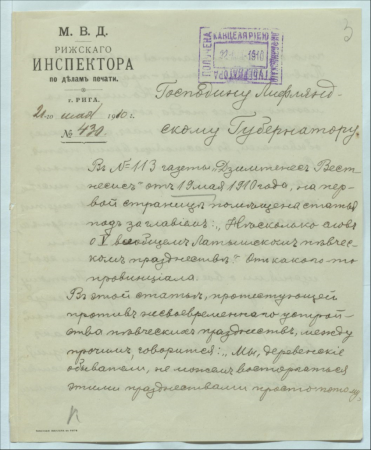 М. В. Д.
РИЖСКАГО
ИНСПЕКТОРА
по дѣламъ печати.
г. РИГА.
21 го мая 1910 г.
№ 430
ПОЛУЧЕНА
КАНЦЕЛЯРІЕЮ
1910
ГУБЕРНАТОРА
Господину Лифлянд-
скому Губернатору.
Въ № 113 газеты „Дзимтенесъ Вест-
несисъ“ отъ 19 мая 1910 года, на пер-
вой страницѣ помѣщена статья
подъ заглавіемъ: „Нѣсколько словъ
о V всеобщемъ Латышскомъ пѣвчес-
комъ празднествѣ.“ Отъ какого то
провинціала.
Въ этой статьѣ, протестующей
противъ несвоевременнаго устрой-
ства пѣвческихъ празднествъ, между
прочимъ, говорится: „Мы, деревенскіе
обыватели, не можемъ восторгаться
этими празднествами просто потому,